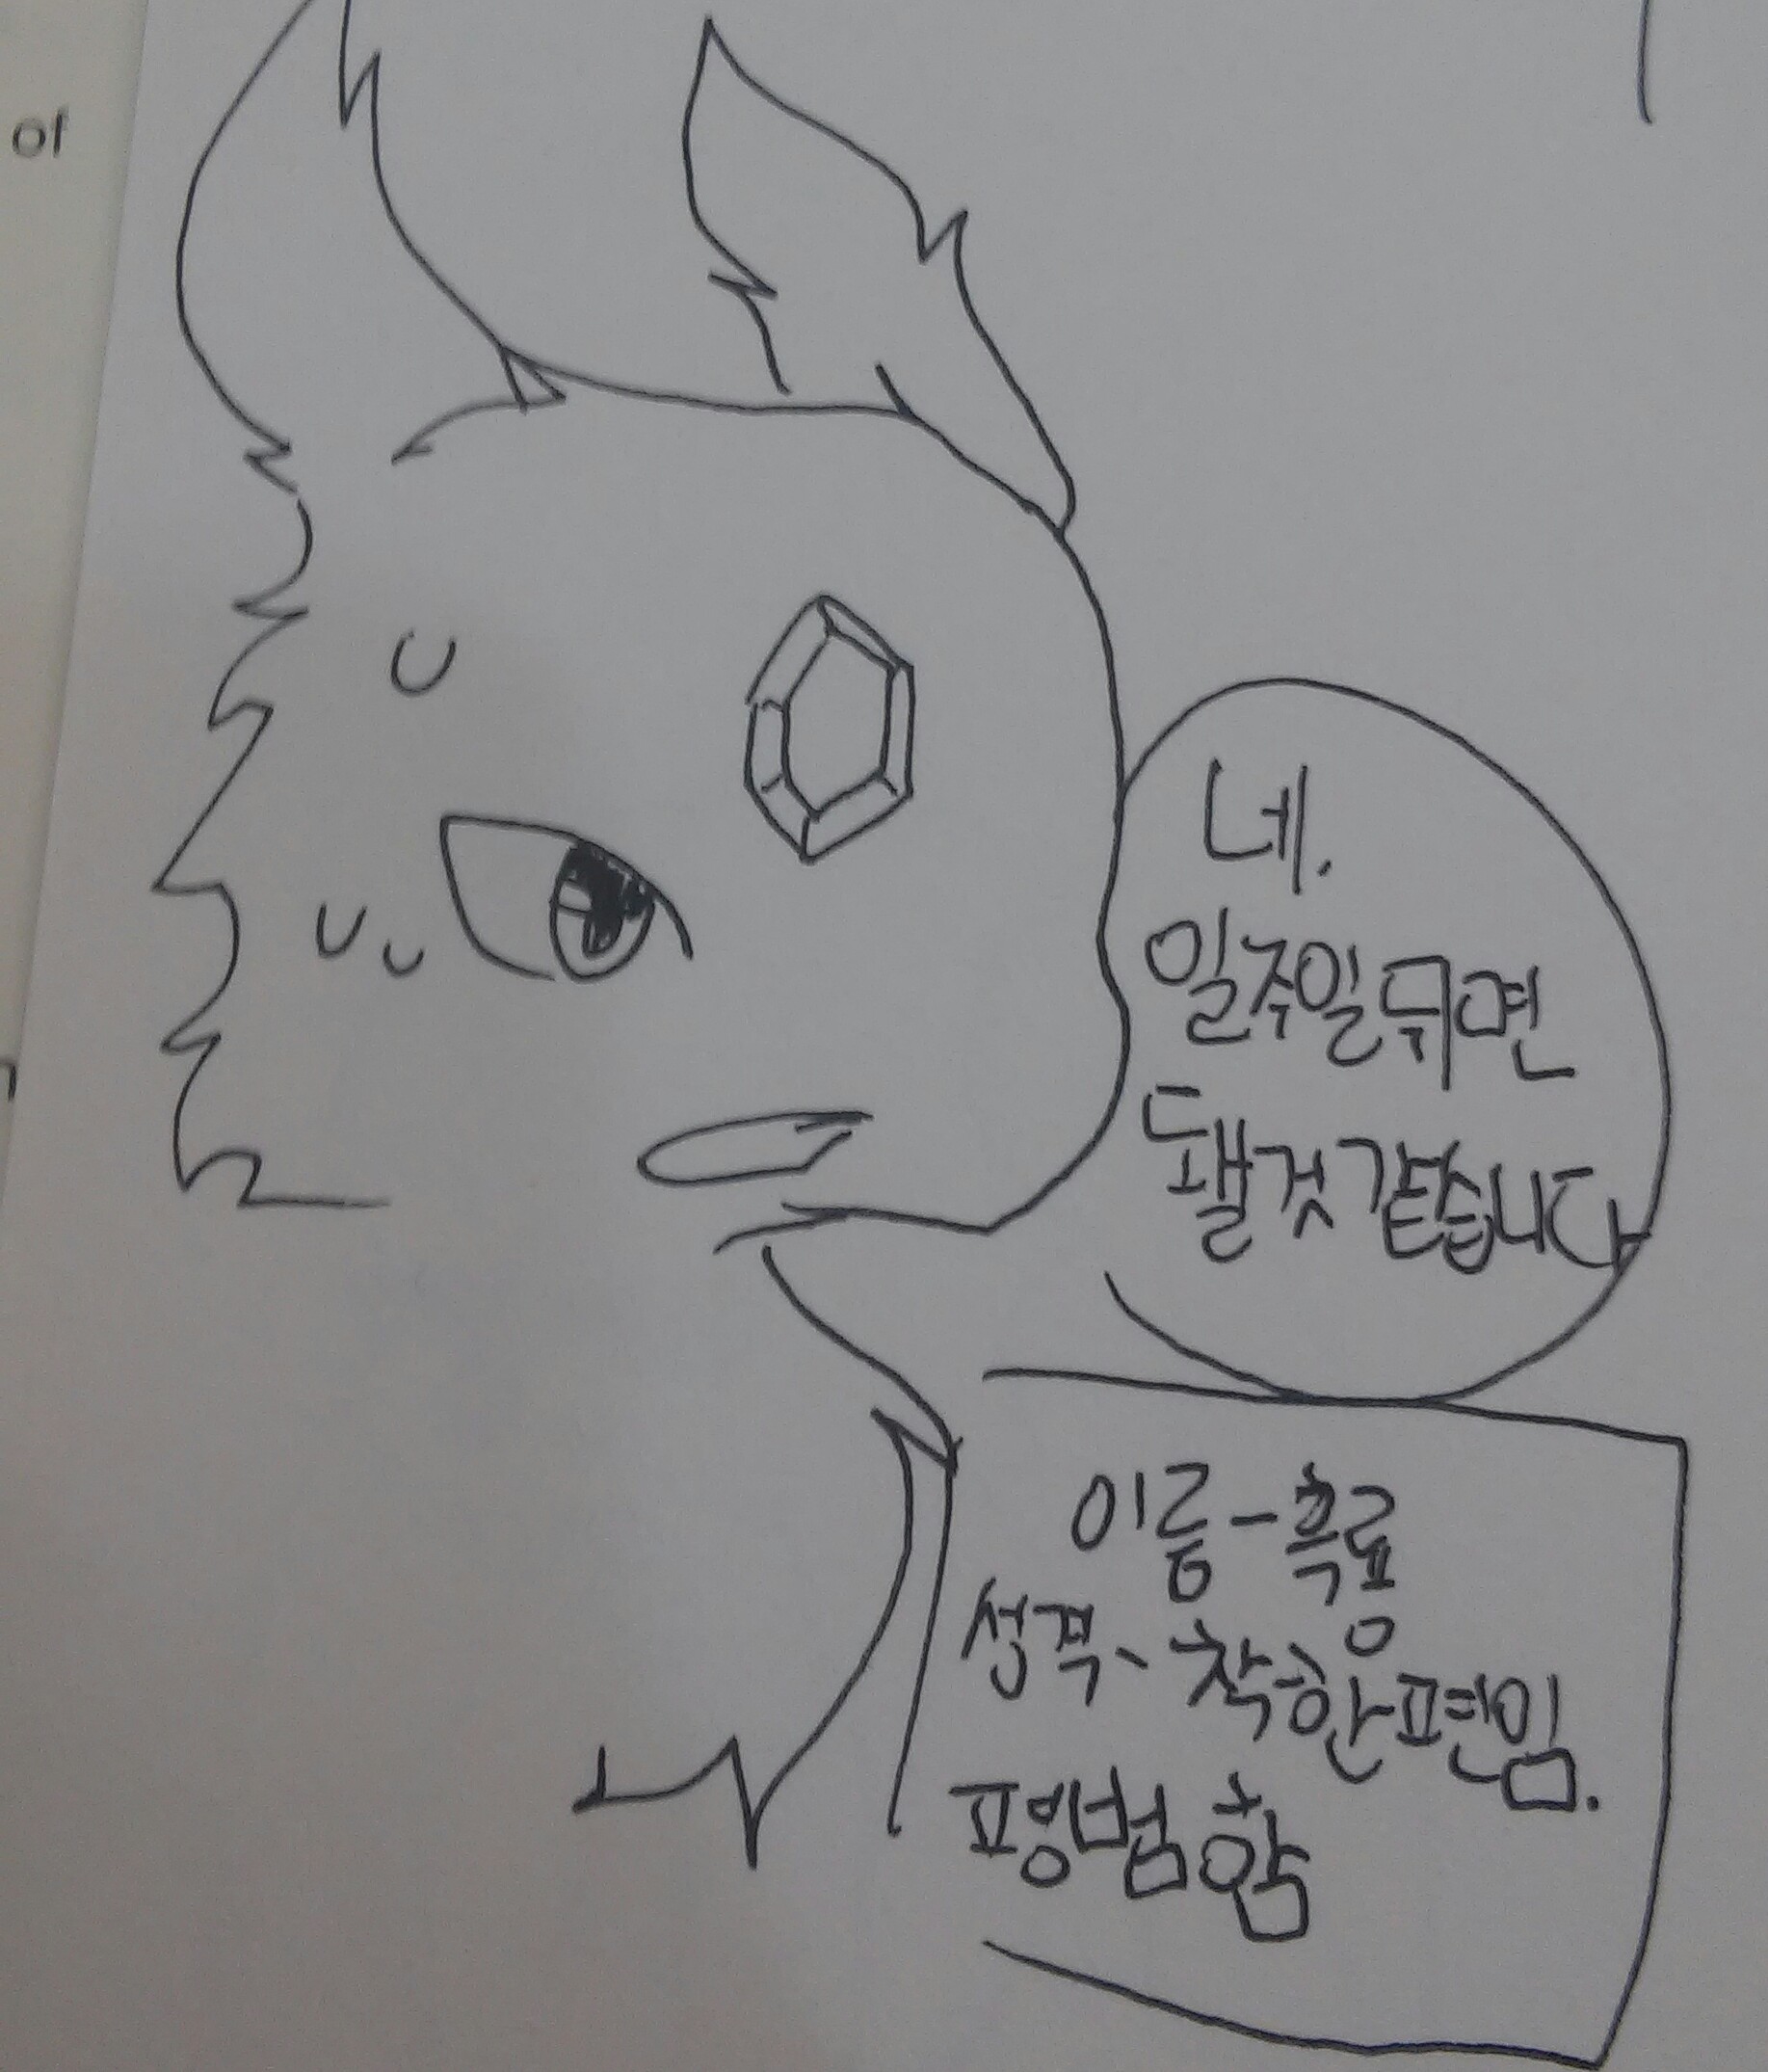 네.
일주일뒤면
됄것같습니다
이름-흑룡
성격-착한편임.
평범함